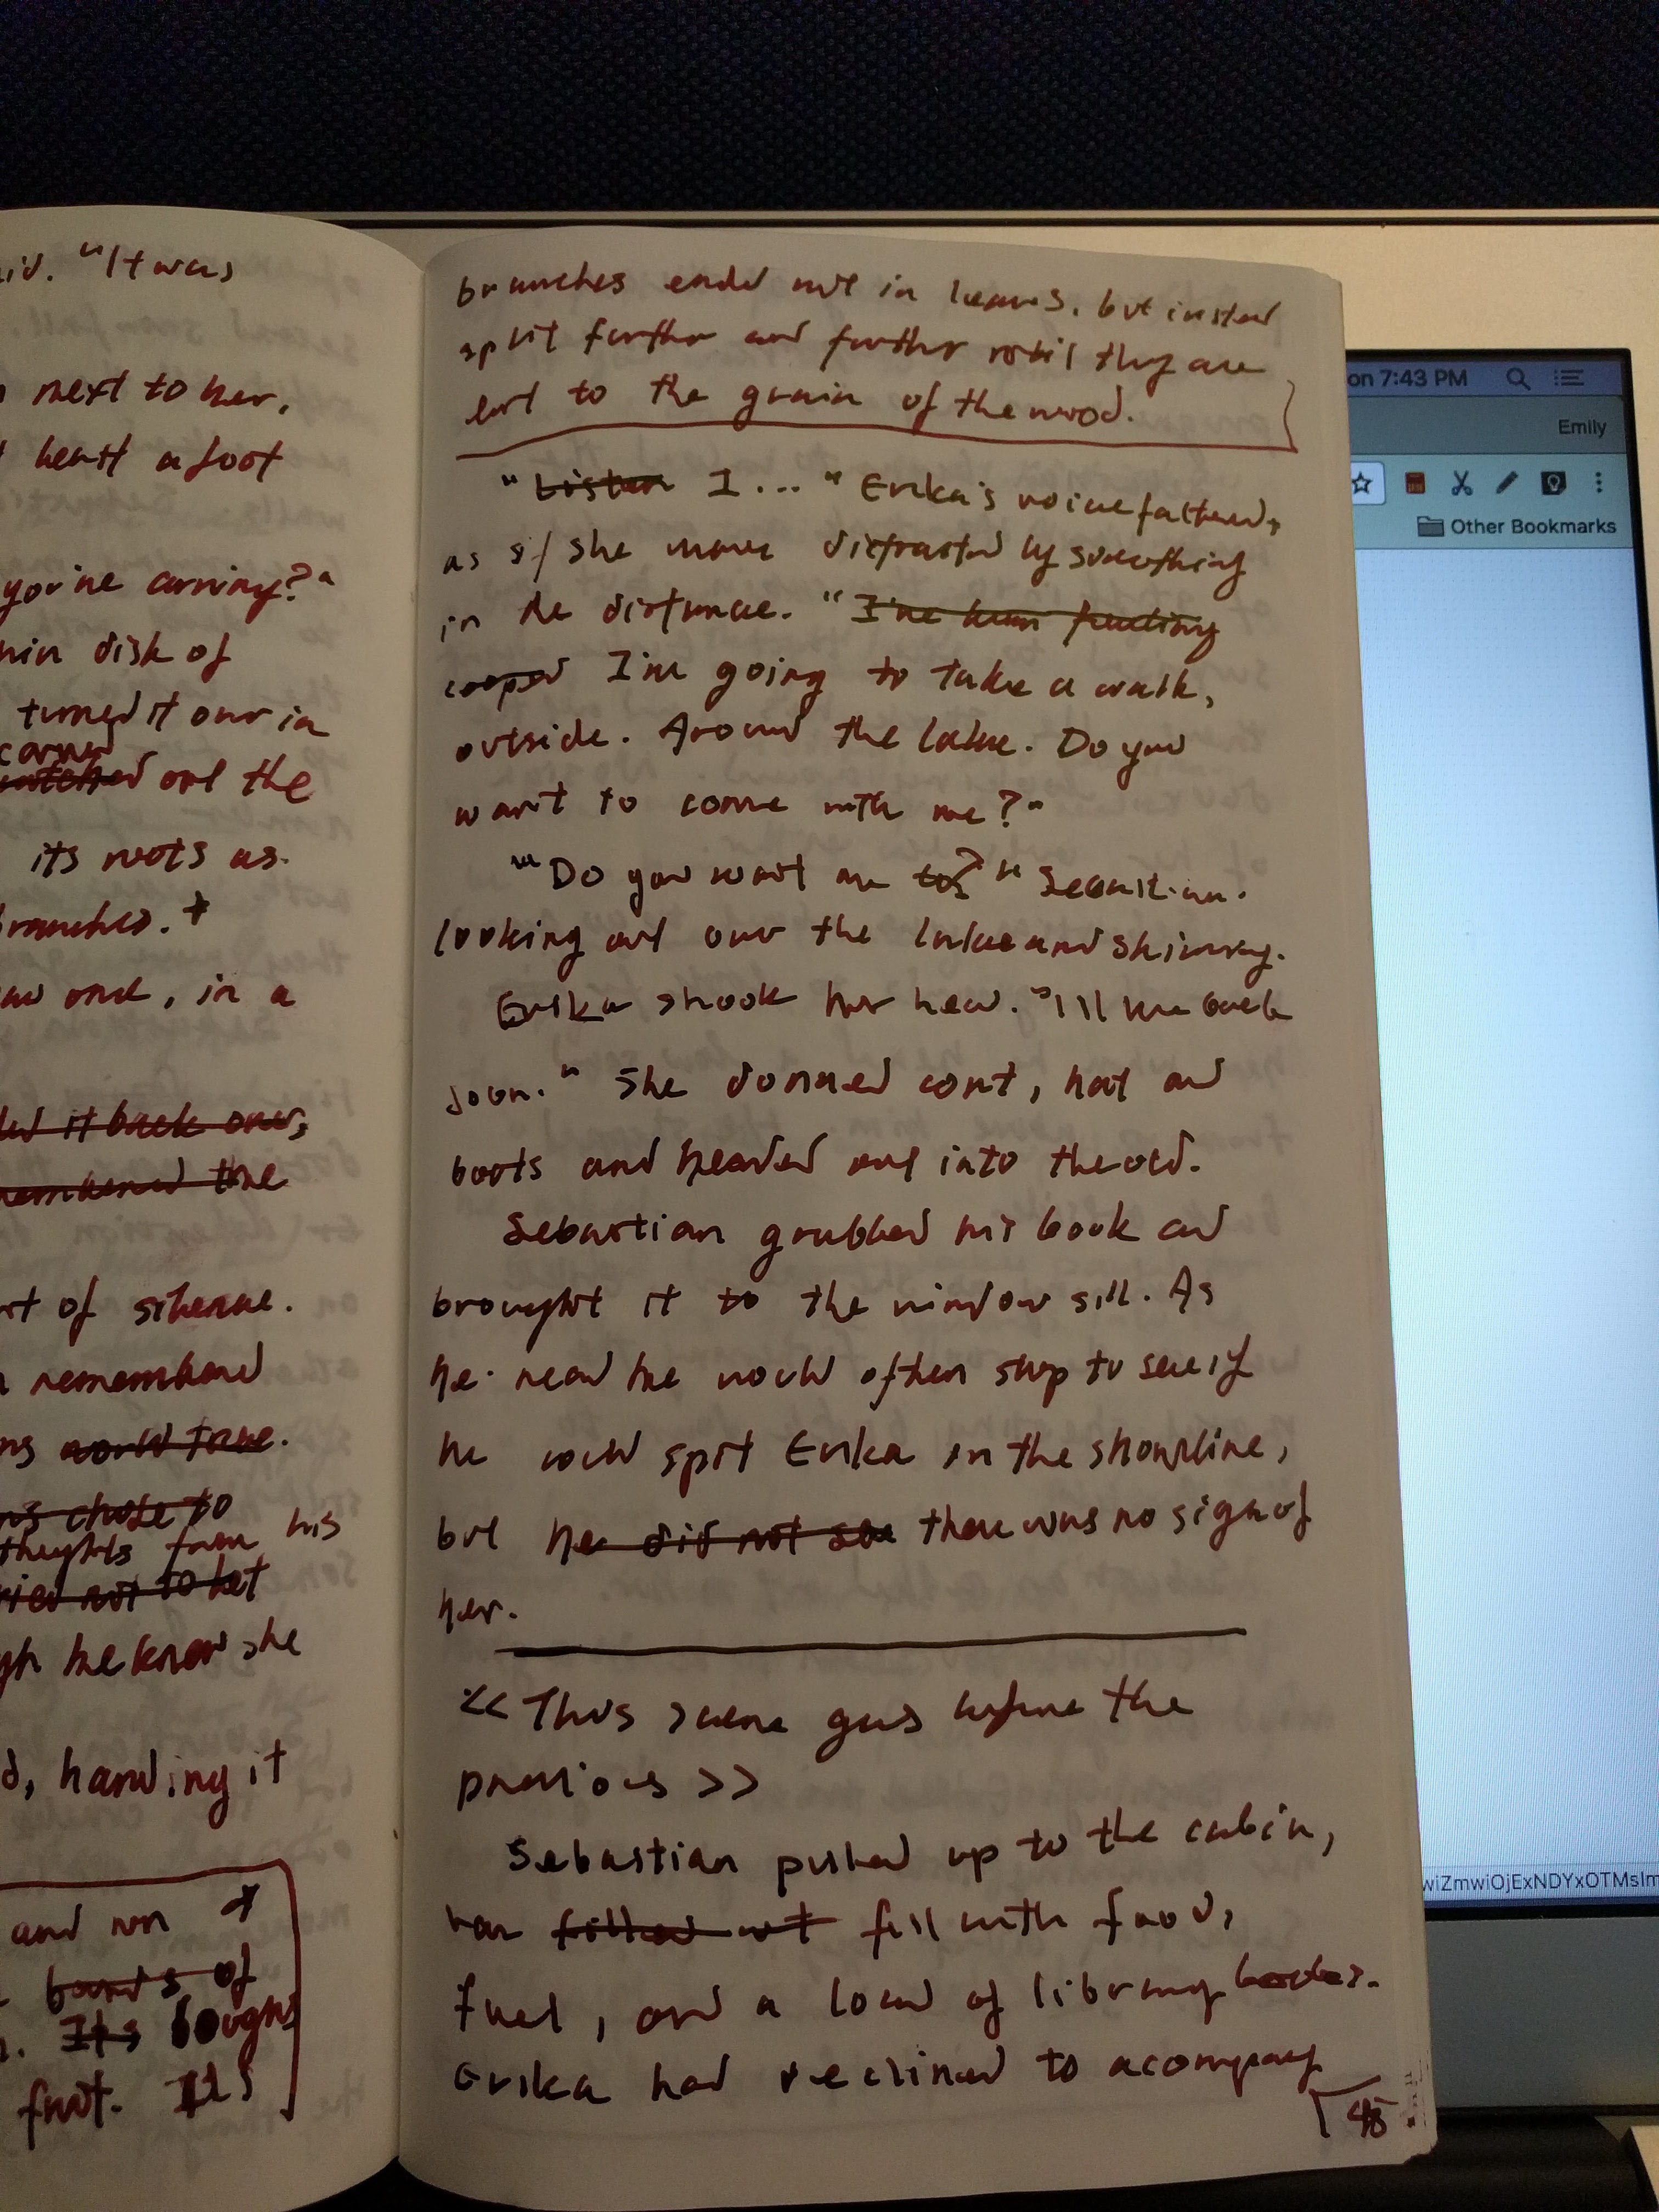 "It was
next to her,
heart a foot
you're carving?"
disk of
turned it over in
carved
out the
its roots as
branches. +
one, in a
it back over,
remembered the
rt of silence.
remembered
chose to
thoughts from his
not to let
he knew she
, handing it
and
boards of
Its boughs
Its
branches ended not in leaves, but instead
split further and further until they are
lost to the grain of the wood.
"Listen I... " Erika's voice faltered,
as if she were distracted by something
in the distance. "I've been feeling
cooped I'm going to take a walk,
outside. Around the lake. Do you
want to come with me?"
"Do you want me to?" Sebastian.
looking out over the lake and
Erika shook her head. "I'll be back
soon." She donned coat, hat and
boots and headed out into the
Sebastian grabbed his book and
brought it to the window sill. As
he read he would often stop to see if
he could spot Erika in the shoreline,
but he did not see there was no sign of
her.
<< This scene goes before the
previous >>
Sebastian pulled up to the cabin,
full with food,
fuel, and a load of library books.
Erika had declined to acompany
48
on 7:43 PM
Emily
Other Bookmarks
wiZmwiOjExNDYxOTMsIm